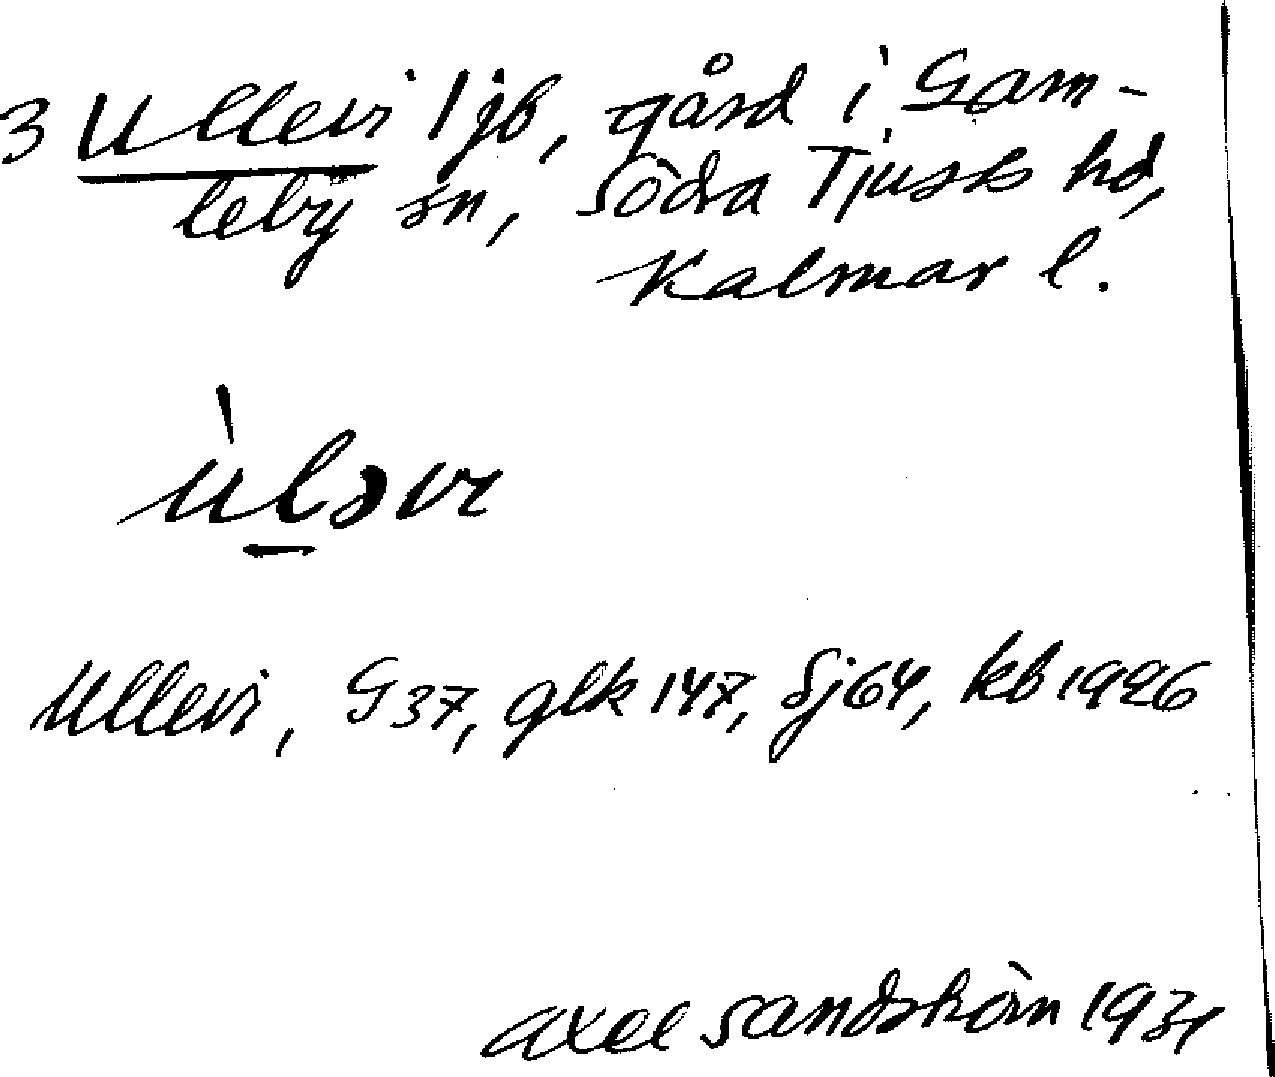 3 Ullevi 1 jb, gård i Gam-
leby sn, Södra Tjusts hd,
Kalmar l.
ùləvı
Ullevi, G 37, glk 147, Sj 64, kb 1926
Axel Sandström 1931